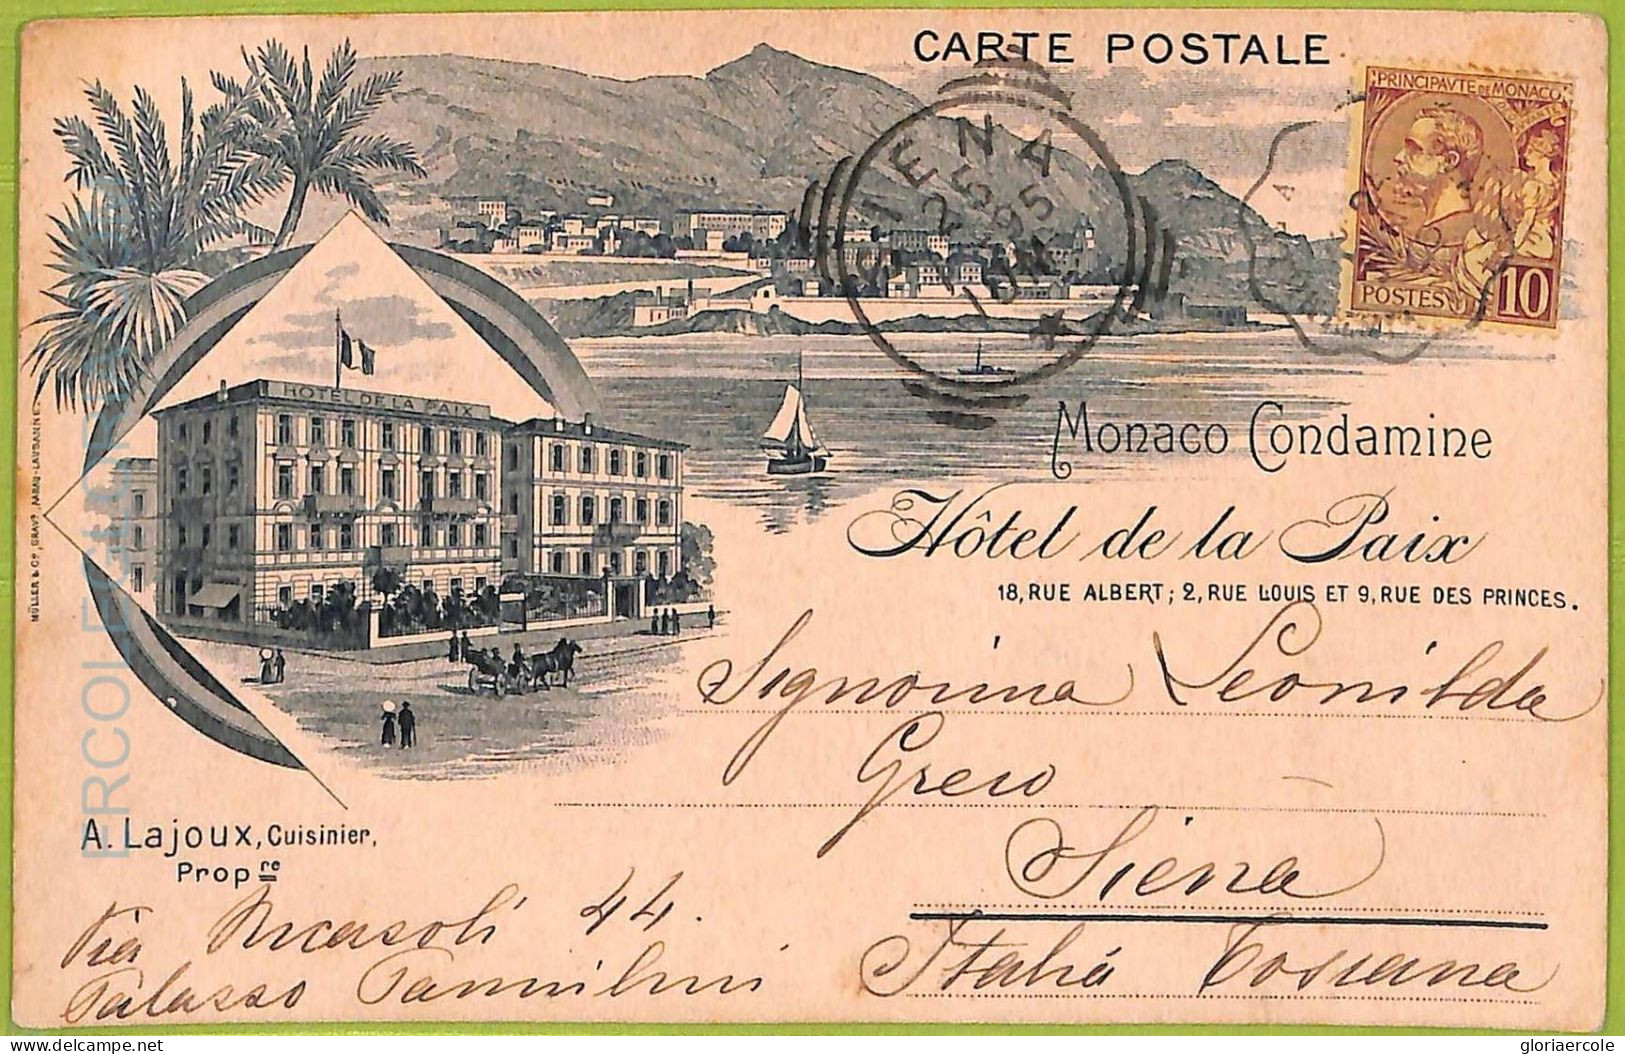 CARTE POSTALE
PRINCIPAUTE DE MONACO
POSTES 10
SIENA
5 95
HOTEL DE LA PAIX
Monaco Condamine
Hôtel de la Paix
18, RUE ALBERT; 2, RUE LOUIS ET 9, RUE DES PRINCES.
MÜLLER & Co, GRAVrs, AARAU-LAUSANNE
Signorina Leonilda
Greco
Siena
Italia Toscana
A. Lajoux, Cuisinier,
Propre
Via Ricasoli 44.
Palasso
ERCOLE GLORIA
delcampe.net
gloriaercole